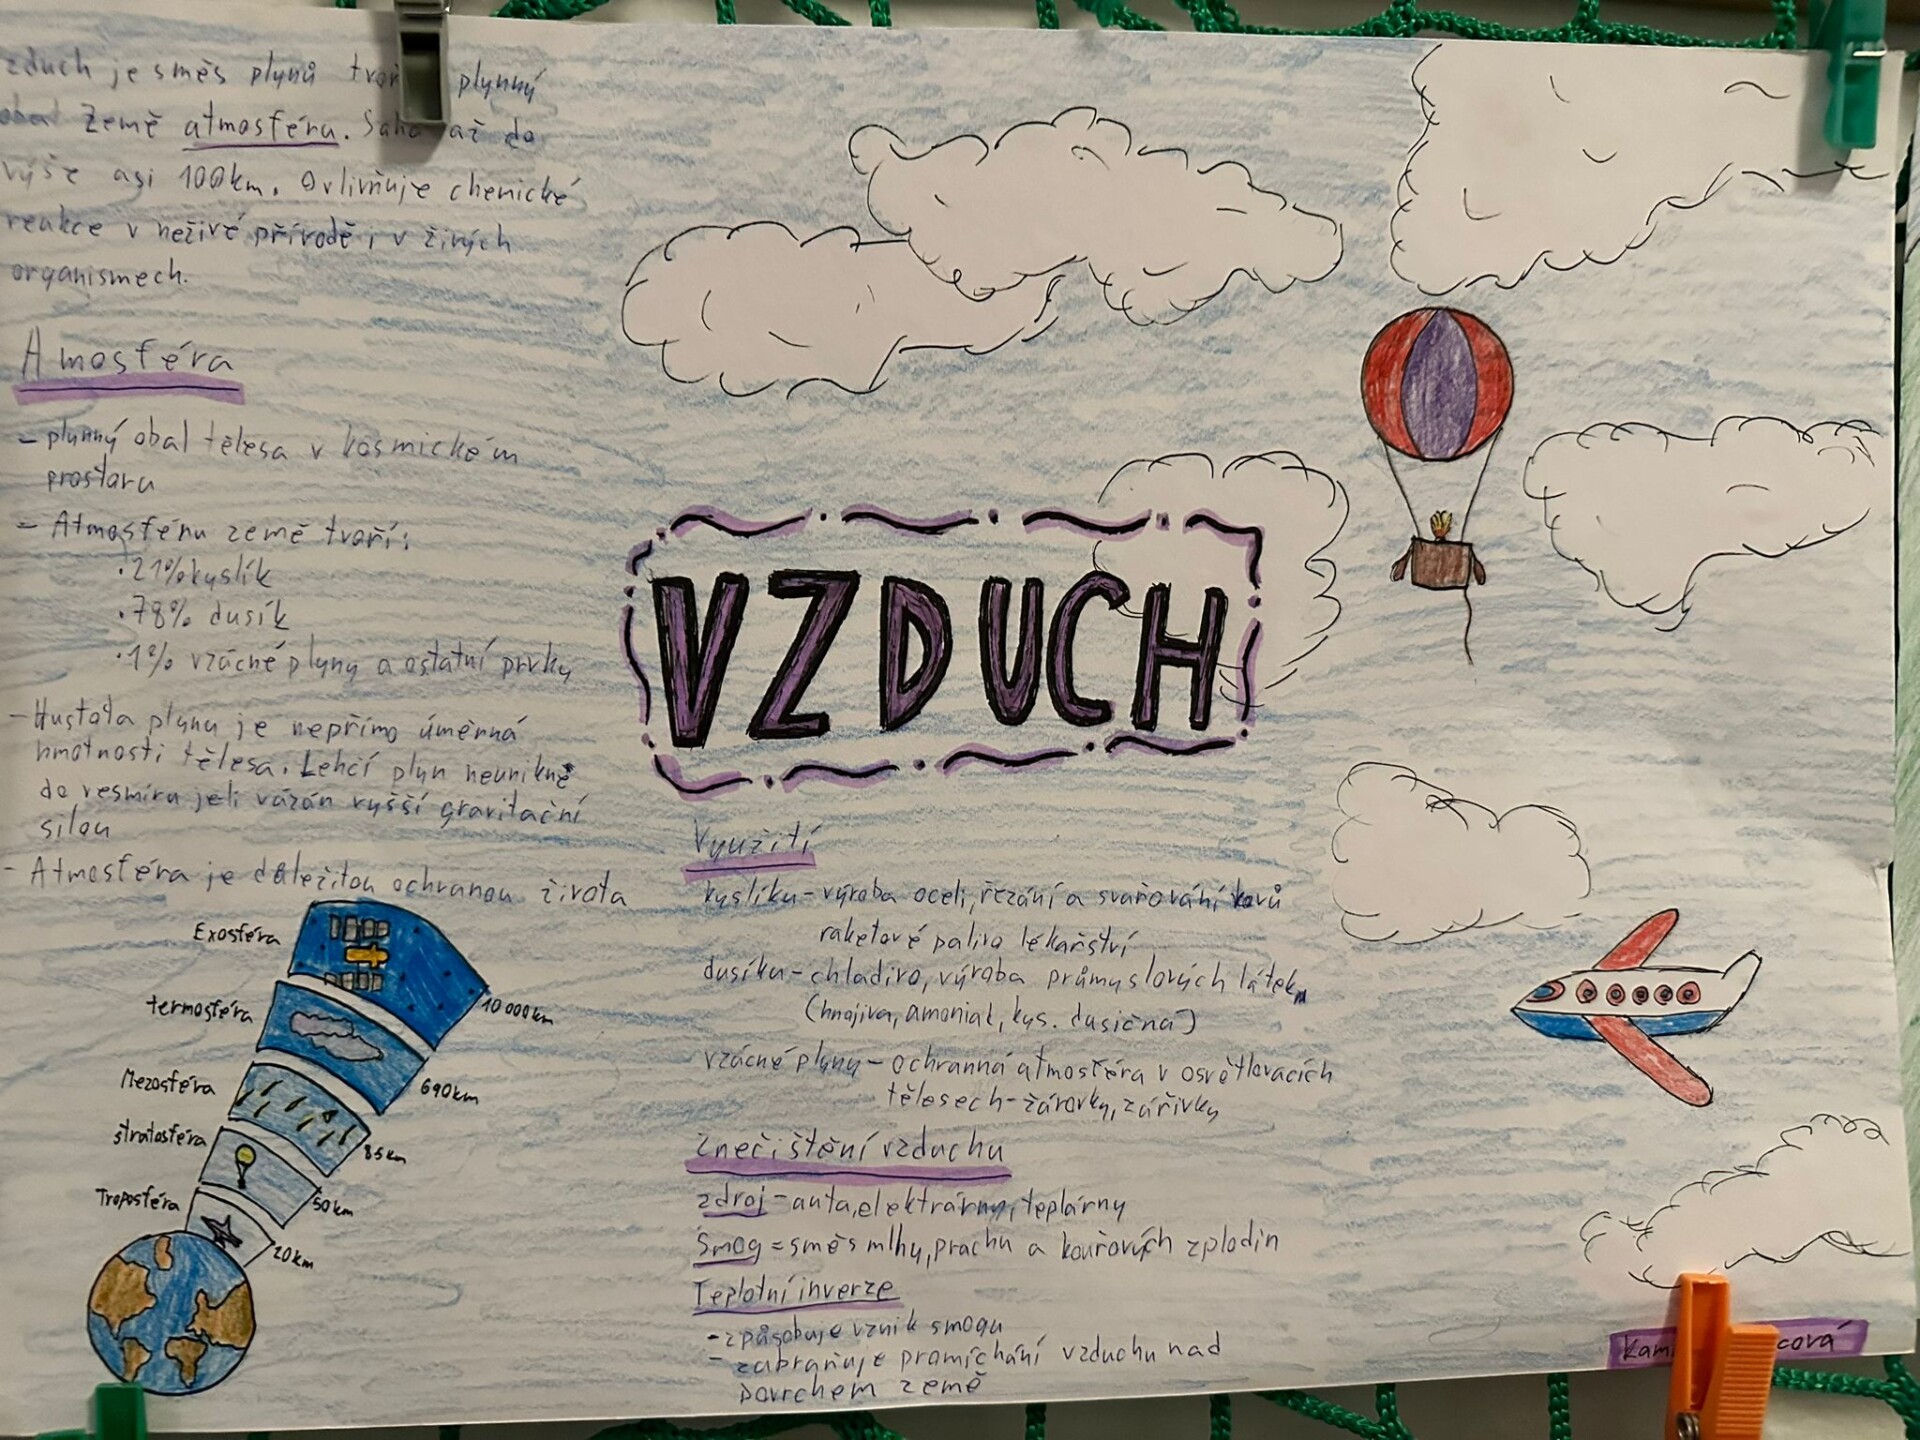 vzduch je směs plynů plynný
obal Země atmosféru. až do
výše asi 100km. Ovlivňuje chemické
reakce v neživé přírodě i v živých
organismech.
Amosféra
- plynný obal tělesa v kosmickém
prostoru
- Atmosféru země tvoří:
·21% kyslík
·78% dusík
·1% vzácné plyny a ostatní prvky
- Hustota plynu je nepřímo úměrná
hmotnosti tělesa. Lehčí plyn neunikne
do vesmíru jeli vázán vyšší gravitační
silou
- Atmosféra je důležitou ochranou života
Exosféra
10 000km
termosféra
690km
Mezosféra
85km
stratosféra
50km
Troposféra
20km
VZDUCH
Využití
kyslíku - výroba oceli, řezání a svařování kovů
raketové palivo lékařství
dusíku - chladivo, výroba průmyslových látek
(hnojiva, amoniak, kys. dusičná)
vzácné plyny - ochranná atmosféra v osvětlovacích
tělesech - žárovky, zářivky
Znečištění vzduchu
zdroj - auta, elektrárny, teplárny
Smog = směs mlhy, prachu a kouřových zplodin
Teplotní inverze
- způsobuje vznik smogu
- zabraňuje promíchání vzduchu nad
povrchem země